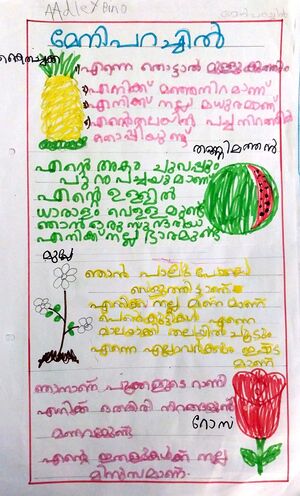 AAdleY Bino
മേനിപറച്ചിൽ
കൈതച്ചക്ക
എന്നെ തൊട്ടാൽ മുള്ളുകുത്തും
എനിക്ക് മഞ്ഞനിറമാണ്
എനിക്ക് നല്ല മധുരമാണ്
എന്റെതലയിൽ പച്ച നിറത്തിൽ
തൊപ്പിയുണ്ട്
തണ്ണിമത്തൻ
എന്റെ അകം ചുവപ്പും
പുറംപച്ചയുമാണ്
എന്റെ ഉള്ളിൽ
ധാരാളം വെള്ളമുണ്ട്
ഞാൻ ഒരു സുന്ദരിയാ
എനിക്ക് നല്ല ഭാരമുണ്ട്
മുല്ല
ഞാൻ പാലുപോലെ
വെളുത്തിട്ടാണ്
എനിക്ക് നല്ല മണമാണ്
പെൺകുട്ടികൾ എന്നെ
മാലയാക്കി തലയിൽ ചൂടും
എന്നെ എല്ലാവർക്കും ഇഷ്ട
മാണ്
ഞാനാണ് പൂക്കളുടെ റാണി
എനിക്ക് ഒത്തിരി നിറങ്ങളുണ്ട്
മണവുമുണ്ട്
റോസ
എന്റെ ഇതളുകൾക്ക് നല്ല
മിനുസമാണ്